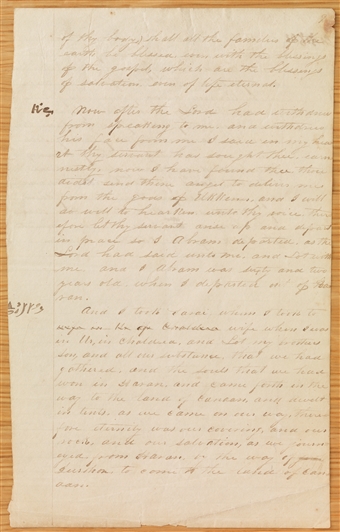 of thy body shall all the families of the
earth be blessed even with the blessings
of the gospel, which are the blessings
of salvation even of life eternal.
Now after the Lord had withdrawn
from speaking to me and withdrew
his face from me I said in my heart
thy servant has sought thee earn
estly now I have found thee thou
didst send thine angel to deliver me
from the gods of Elkkener and I will
do well to hearken unto thy voice there
fore let thy servant rise up and depart
in peace so I Abram departed as the
Lord had said unto me, and Lot with
me and I Abram was sixty and two
years old, when I departed out of Ha
ran.
And I took Sarai whom I took to
wife when I was
in Ur, in Chaldea, and Lot my brothers
son, and all our substance, that we had
gathered, and the souls that we had
won in Haran and came forth in the
way to the land of Canaan, and dwelt
in tents, as we came on our way, there
fore eternity was our covering, and our
rock, and our salvation, as we journ
eyed from Haran, by the way of
Jurshon to come to the land of Can
aan.